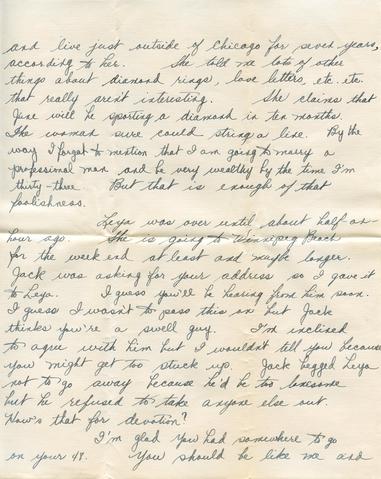 and live just outside of Chicago for seven years,
according to her. She told me lots of other
things about diamond rings, love letters, etc. etc.
that really aren't interesting. She claims that
June will be sporting a diamond in ten months.
The woman sure could string a line. By the
way I forgot to mention that I am going to marry a
professional man and be very wealthy by the time I'm
thirty-three. But that is enough of that
foolishness.
Leya was over until about half an
hour ago. She is going to Winnipeg Beach
for the week end at least and maybe longer.
Jack was asking for your address so I gave it
to Leya. I guess you'll be hearing from him soon.
I guess I wasn't to pass this on but Jack
thinks you're a swell guy. I'm inclined
to agree with him but I wouldn't tell you because
you might get too stuck up. Jack begged Leya
not to go away because he'd be too lonesome
but he refused to take anyone else out.
How's that for devotion?
I'm glad you had somewhere to go
on your 48. You should be like me and